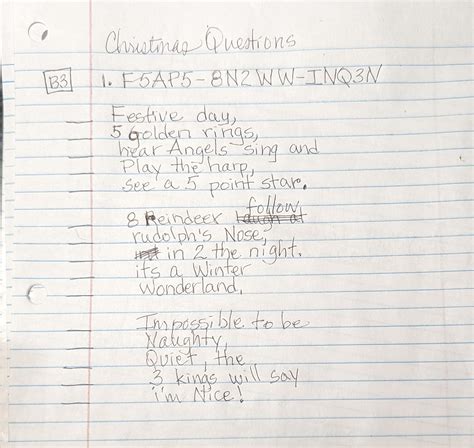 Christmas Questions
B3 1. F5AP5-8N2WW-INQ3N
Festive day,
5 golden rings,
hear Angels sing and
Play the harp,
see a 5 point star.
follow
8 Reindeer laugh at
rudolph's Nose,
in 2 the night.
its a Winter
Wonderland,
Impossible to be
Naughty,
Quiet, the
3 kings will say
i'm Nice!